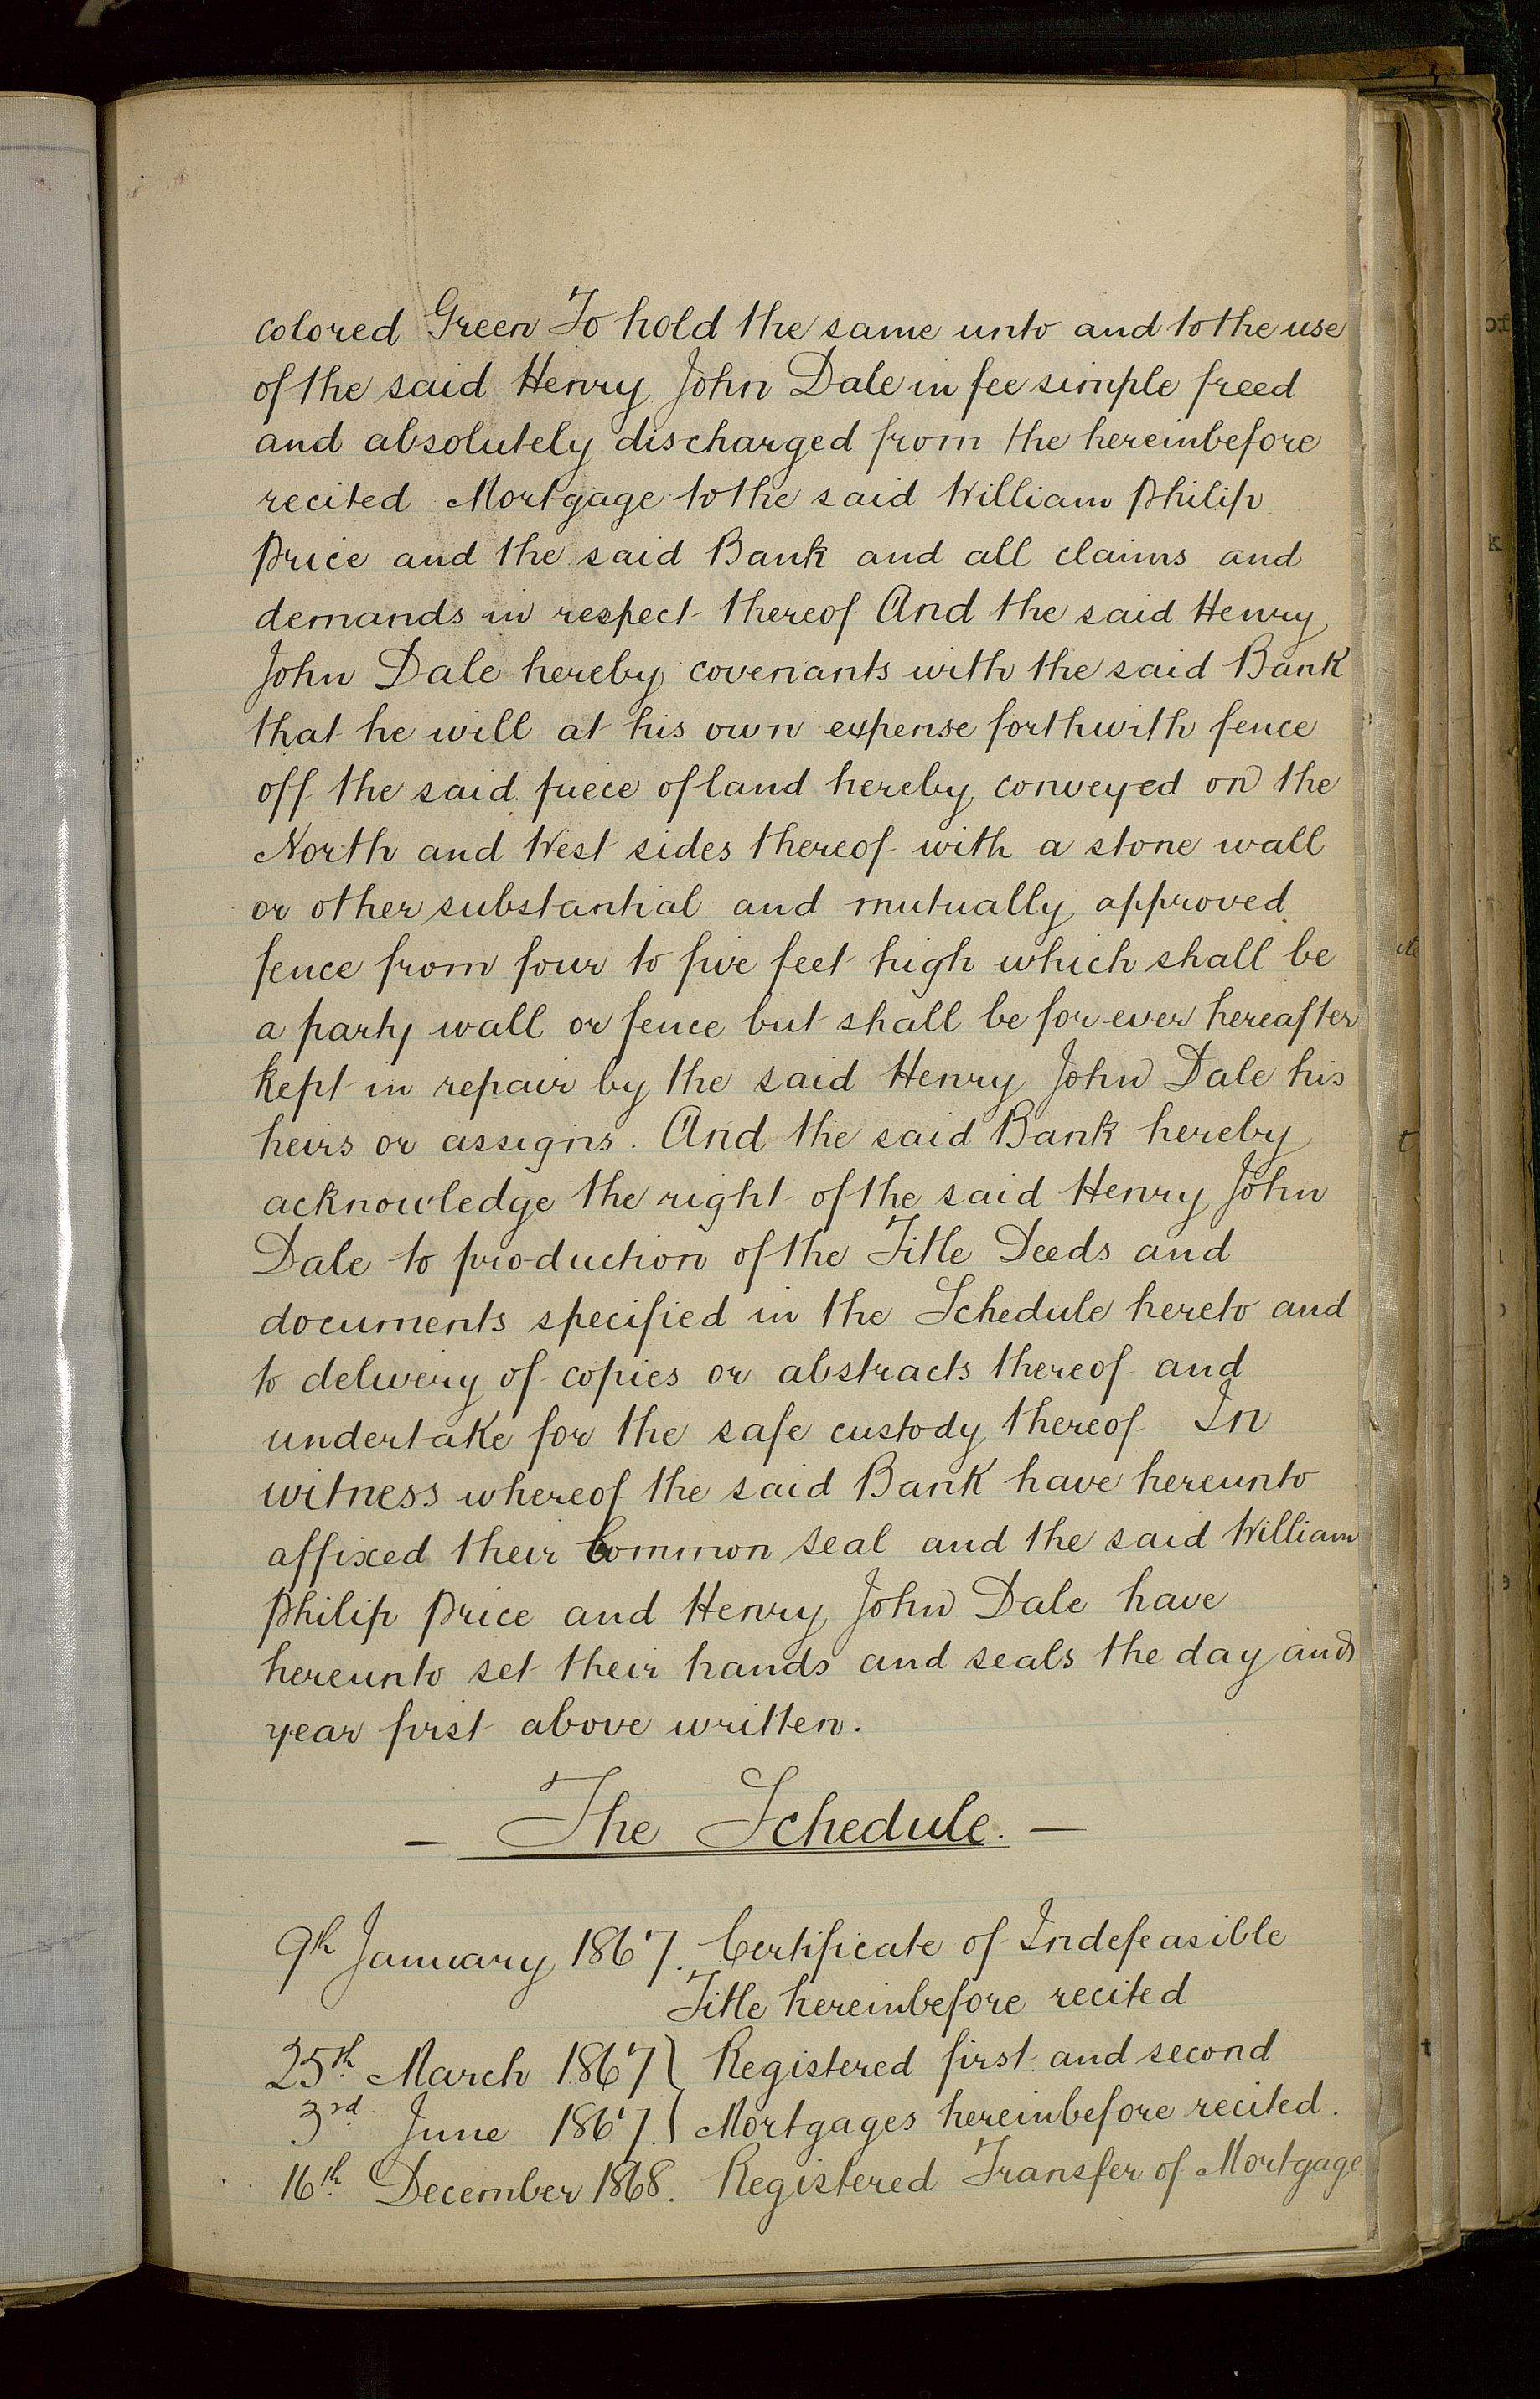 colored Green To hold the same unto and to the use
of the said Henry John Dale in fee simple freed
and absolutely discharged from the hereinbefore
recited Mortgage to the said William Philip
Price and the said Bank and all claims and
demands in respect thereof And the said Henry
John Dale hereby covenants with the said Bank
that he will at his own expense forthwith fence
off the said piece of land hereby conveyed on the
North and West sides thereof with a stone wall
or other substantial and mutually approved
fence from four to five feet high which shall be
a party wall or fence but shall be for ever hereafter
kept in repair by the said Henry John Dale his
heirs or assigns. And the said Bank hereby
acknowledge the right of the said Henry John
Dale to production of the Title Deeds and
documents specified in the Schedule hereto and
to delivery of copies or abstracts thereof and
undertake for the safe custody thereof In
witness whereof the said Bank have hereunto
affixed their Common seal and the said William
Philip Price and Henry John Dale have
hereunto set their hands and seals the day and
year first above written.
— The Schedule. —
9th January 1867. Certificate of Indefeasible
Title hereinbefore recited
25th March 1867 } Registered first and second
3rd June 1867. } Mortgages hereinbefore recited.
16th December 1868. Registered Transfer of Mortgage